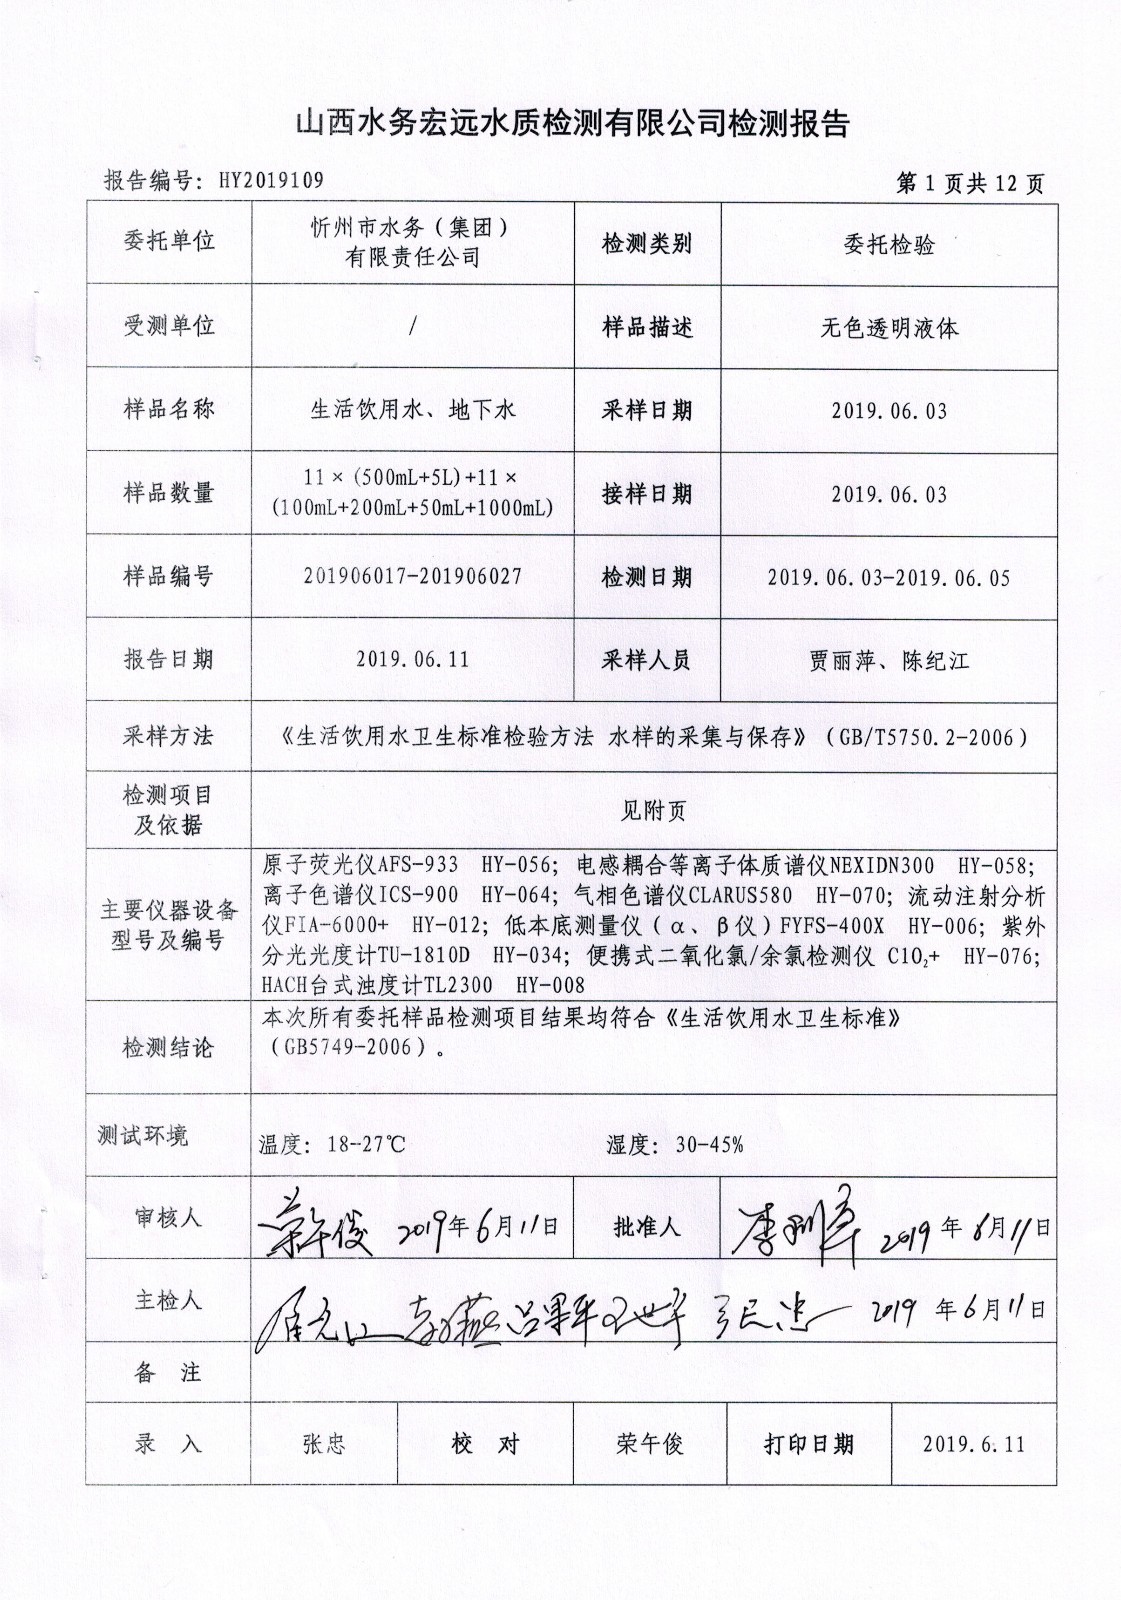 山西水务宏远水质检测有限公司检测报告
报告编号：HY2019109
第 1 页共 12 页
委托单位
忻州市水务（集团）
有限责任公司
检测类别
委托检验
受测单位
/
样品描述
无色透明液体
样品名称
生活饮用水、地下水
采样日期
2019.06.03
样品数量
11×(500mL+5L)+11×
(100mL+200mL+50mL+1000mL)
接样日期
2019.06.03
样品编号
201906017-201906027
检测日期
2019.06.03-2019.06.05
报告日期
2019.06.11
采样人员
贾丽萍、陈纪江
采样方法
《生活饮用水卫生标准检验方法 水样的采集与保存》（GB/T5750.2-2006）
检测项目
及依据
见附页
主要仪器设备
型号及编号
原子荧光仪AFS-933 HY-056；电感耦合等离子体质谱仪NEXIDN300 HY-058；
离子色谱仪ICS-900 HY-064；气相色谱仪CLARUS580 HY-070；流动注射分析
仪FIA-6000+ HY-012；低本底测量仪（α、β仪）FYFS-400X HY-006；紫外
分光光度计TU-1810D HY-034；便携式二氧化氯/余氯检测仪 ClO₂+ HY-076；
HACH台式浊度计TL2300 HY-008
检测结论
本次所有委托样品检测项目结果均符合《生活饮用水卫生标准》
（GB5749-2006）。
测试环境
温度：18-27℃
湿度：30-45%
审核人
荣午俊 2019年6月11日
批准人
2019年6月11日
主检人
2019年6月11日
备 注
录 入
张忠
校 对
荣午俊
打印日期
2019.6.11